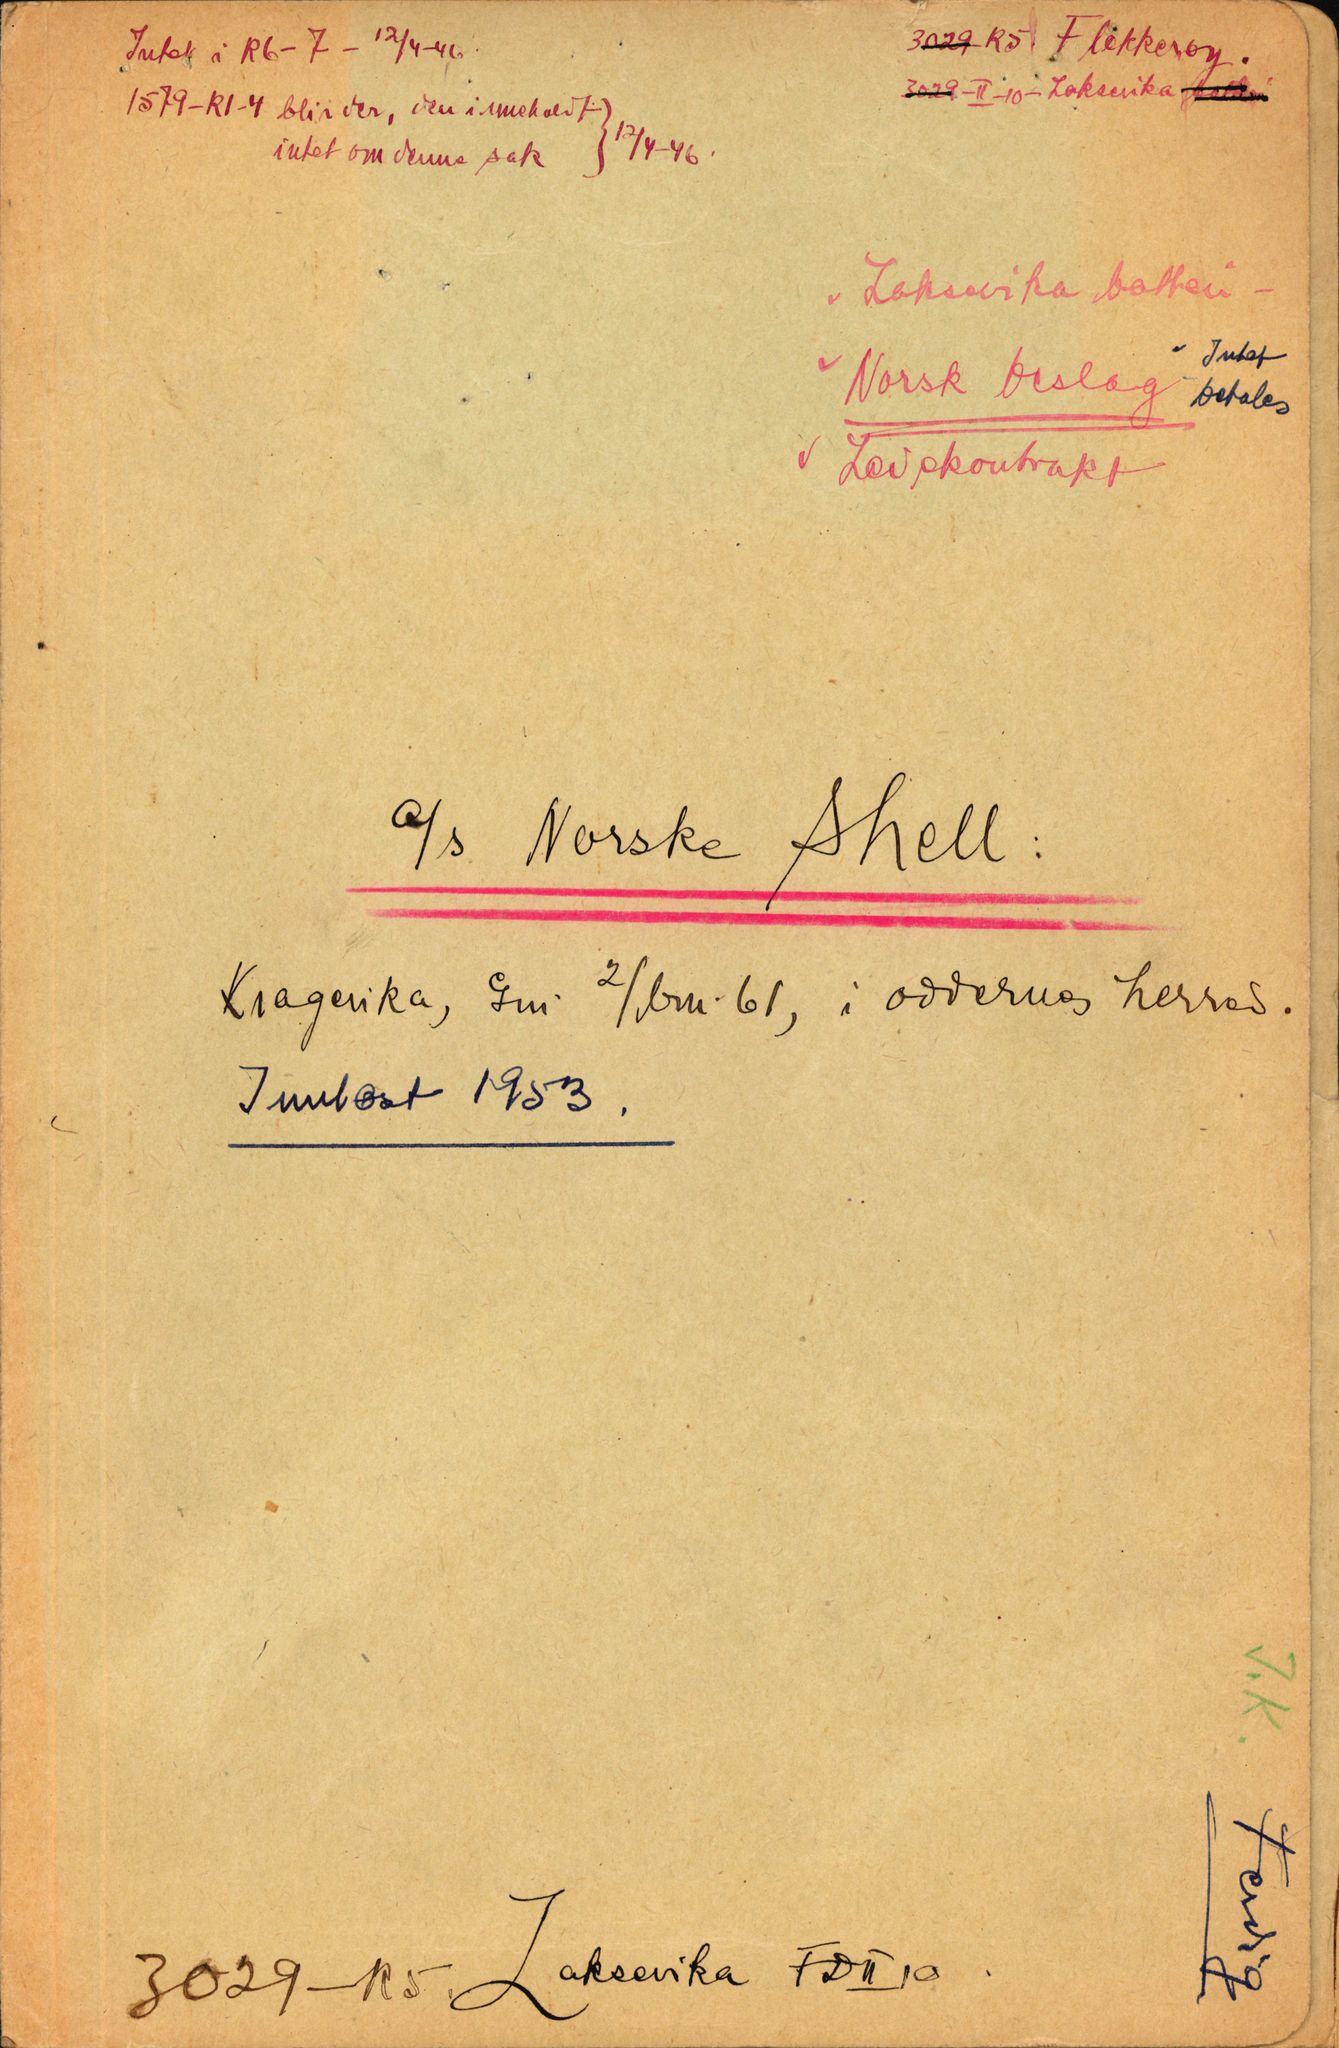 Intet i R6-7-12/4-46.
1579-R1-4 blir der, den inneholdt
intet om denne sak } 12/4-46.
3029-R5 Flekkerøy.
3029-II-10-Laksevika
Laksevika batteri -
Norsk beslag - Intet
betales
Leiekontrakt
a/s Norske Shell:
Kragevika, Gnr 2/brn. 61, i oddernes herred.
Innløst 1953.
J.K.
Ferdig
3029-R5. Laksevika FDII10.